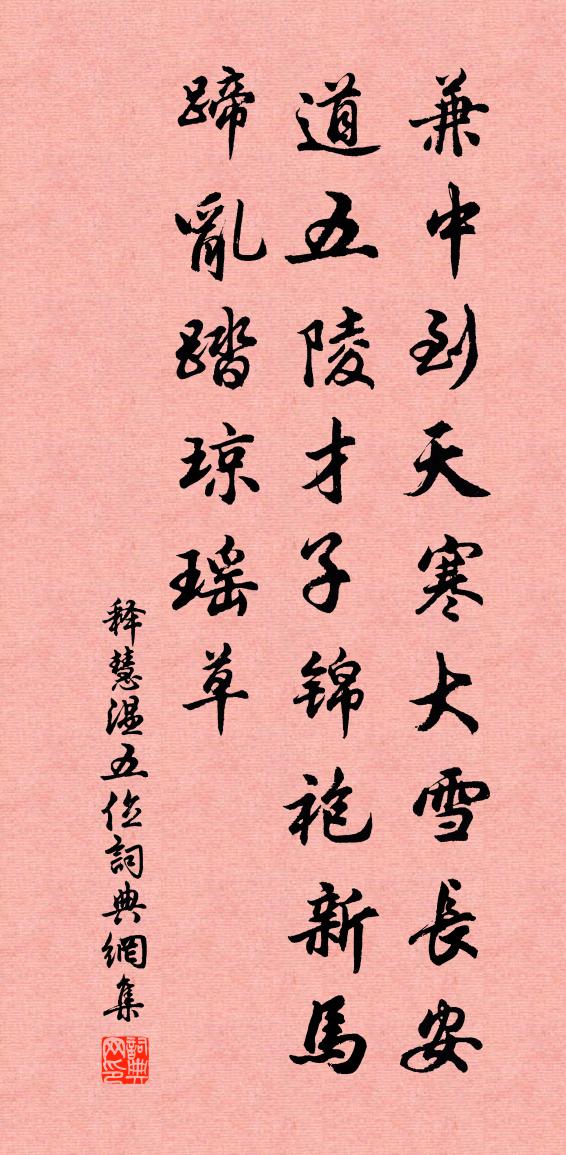 兼中到天寒大雪長安
道五陵才子錦袍新馬
蹄亂踏琼瑶草
释慧温五位詞典網集
詞典网印